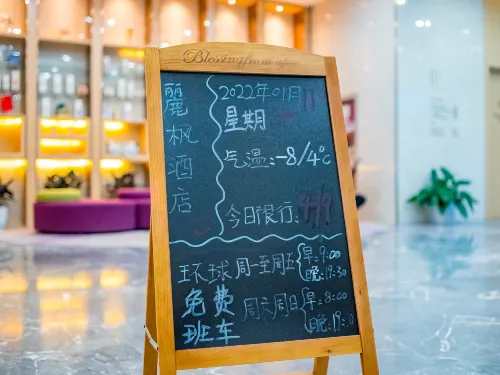 Blessing from afar
麗枫酒店
2022年01月11
星期
气温:-8/4℃
今日限行:4/9
环球免费班车
周一至周五 早:9:00
晚:19:30
周六周日 早:8:00
晚:19:0